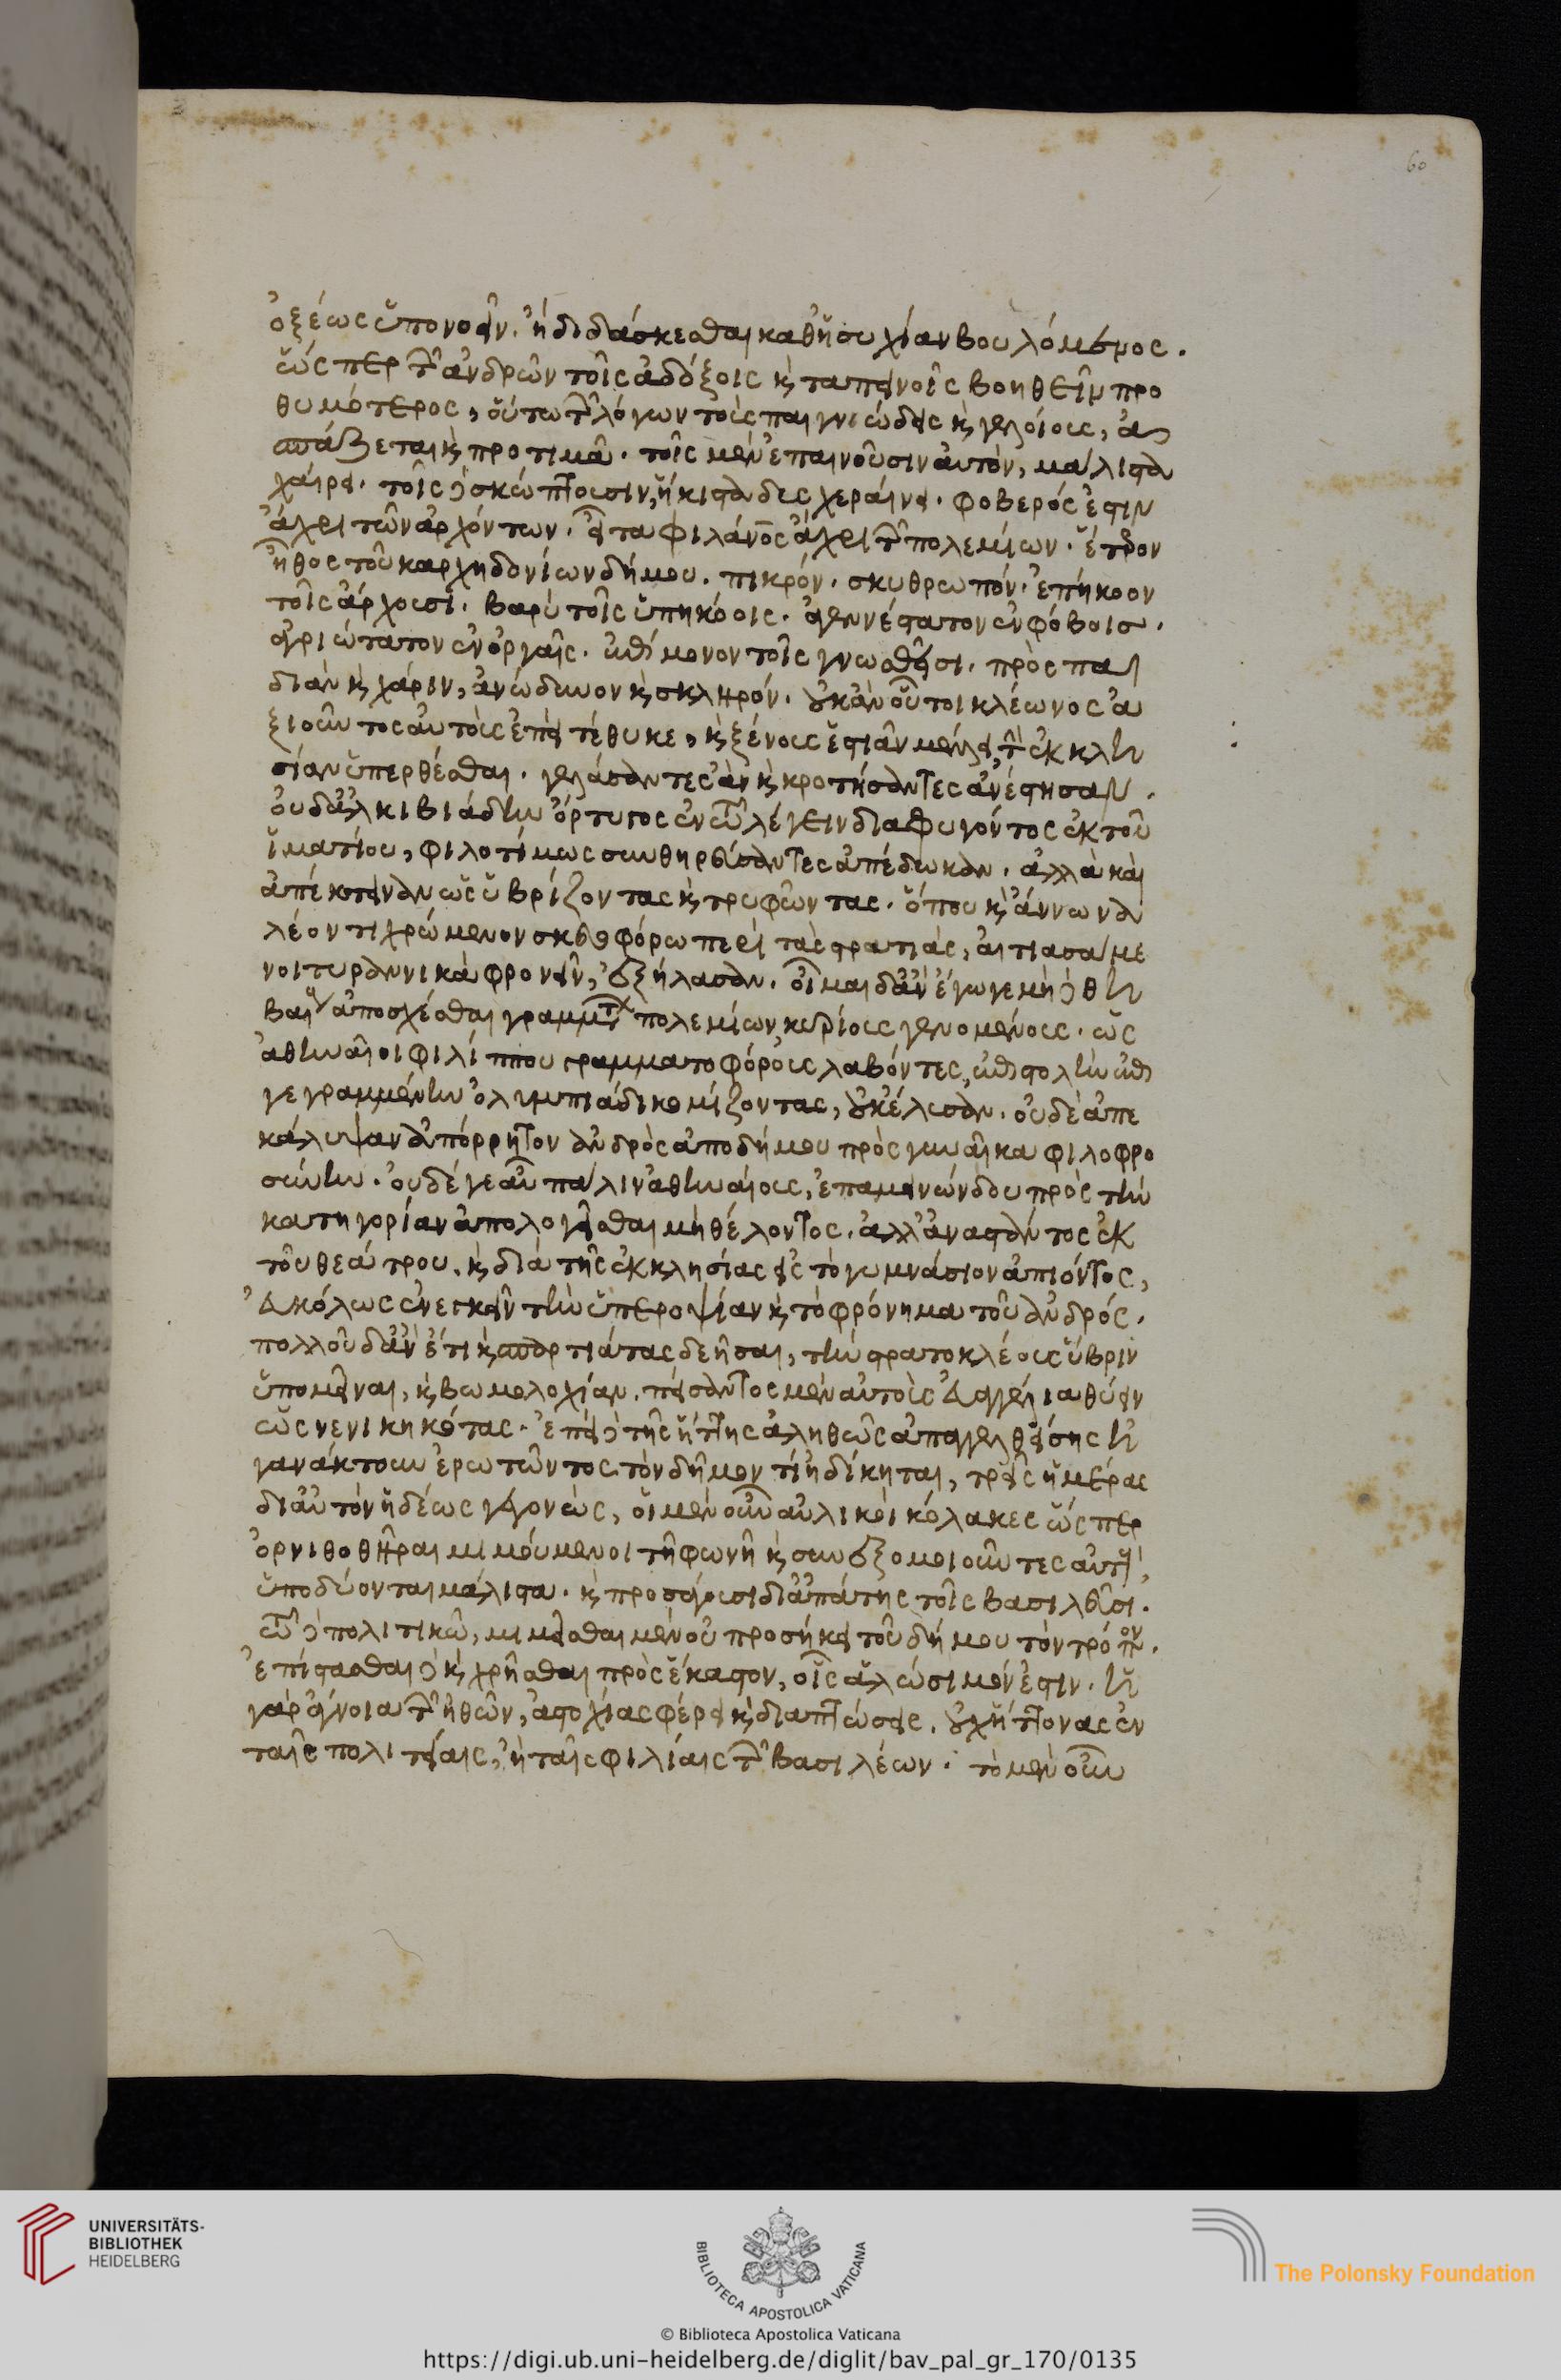 60
ὀξέως ὑπονοεῖν. ἢ διδάσκεσθαι καθ' ἡσυχίαν βουλόμενος.
ὥσπερ τῶν ἀνδρῶν τοῖς ἀδόξοις κ ταπεινοῖς βοηθεῖν προ
θυμότερος, οὕτω τῶν λόγων τοὺς παιγνιώδεις κ γελοίους, ἀ
σπάζεται κ προτιμᾶ. τοῖς μὲν ἐπαινοῦσιν αὐτὸν, μάλιστα
χαίρει. τοῖς δὲ σκώπτουσιν, ἥκιστα δυσχεραίνει. φοβερός ἐστιν
ἄχρι τῶν ἀρχόντων. εἶτα φιλάνος ἄχρι τῶν πολεμίων. ἕτερον
ἦθος τοῦ καρχηδονίων δήμου. πικρόν. σκυθρωπόν. ἐπήκοον
τοῖς ἄρχουσι. βαρὺ τοῖς ὑπηκόοις. ἀγεννέστατον ἐν φόβοις.
ἀγριώτατον ἐν ὀργαῖς. ἐπίμονον τοῖς γνωσθεῖσι. πρὸς παι
διὰν κ χάριν, ἀνώδυνον κ σκληρόν. οὐκ ἂν οὗτοι κλέωνος ἀ
ξιοῦντος αὐτοὺς ἐπεὶ τέθυκε, κ ξένους ἑστιᾶν μέλλει, τὴν ἐκκλη
σίαν ὑπερθέσθαι. γελάσαντες ἂν κ κροτήσαντες ἀνέστησαν.
οὐδ' ἀλκιβιάδην ὄρτυγος ἐν τῶ λέγειν διαφυγόντος ἐκ τοῦ
ἱματίου, φιλοτίμως συνθηρεύσαντες ἀπέδωκαν. ἀλλὰ καὶ
ἀπέκτειναν ὡς ὑβρίζοντας κ τρυφῶντας. ὅπου κ ἄννωνα
λέοντι χρώμενον σκευοφόρω περὶ τὰς στρατιάς, αἰτιασάμε
νοι τυραννικὰ φρονεῖν, ἐξήλασαν. οἶμαι δ' ἂν ἔγωγε μὴ δὲ θη
βαίους ἀποσχέσθαι γραμμάτων πολεμίων κυρίους γενομένους. ὡς
ἀθηναῖοι φιλίππου γραμματοφόρους λαβόντες, ἐπιστολὴν ἐπι
γεγραμμένην ὀλυμπιάδι κομίζοντας, οὐκ ἔλυσαν. οὐδὲ ἀπε
κάλυψαν ἀπόρρητον ἀνδρὸς ἀποδήμου πρὸς γυναῖκα φιλοφρο
σύνην. οὐδέ γε αὖ πάλιν ἀθηναίους, ἐπαμεινώνδου πρὸς τὴν
κατηγορίαν ἀπολογεῖσθαι μὴ θέλοντος. ἀλλ' ἀναστάντος ἐκ
τοῦ θεάτρου, κ διὰ τῆς ἐκκλησίας εἰς τὸ γυμνάσιον ἀπιόντος,
εὐκόλως ἐνεγκεῖν τὴν ὑπεροψίαν κ τὸ φρόνημα τοῦ ἀνδρός.
πολλοῦ δ' ἂν ἔτι κ σπαρτιάτας δεῆσαι, τὴν στρατοκλέους ὕβριν
ὑπομεῖναι, κ βωμολοχίαν. πείσαντος μὲν αὐτοὺς εὐαγγέλια θύειν
ὡς νενικηκότας. ἐπεὶ δὲ τῆς ἥττης ἀληθῶς ἀπαγγελθείσης ἠ
γανάκτουν ἐρωτῶντος τὸν δῆμον τί ἠδίκηται, τρεῖς ἡμέρας
δι' αὐτὸν ἡδέως γεγονώς, οἱ μὲν οὖν αὐλικοὶ κόλακες ὥσπερ
ὀρνιθοθῆραι μιμούμενοι τῇ φωνῇ κ συνεξομοιοῦντες αὐτούς,
ὑποδύονται μάλιστα. κ προσάγουσι δι' ἀπάτης τοῖς βασιλεῦσι.
τῶ δὲ πολιτικῶ, μιμεῖσθαι μὲν οὐ προσήκει τοῦ δήμου τὸν τρόπον.
ἐπίστασθαι δὲ κ χρῆσθαι πρὸς ἕκαστον, οἷς ἁλώσιμόν ἐστιν. ἡ
γὰρ ἄγνοια τῶν ἠθῶν, ἀστοχίας φέρει κ διαπτώσεις, οὐχ ἥττονας ἐν
ταῖς πολιτείαις, ἢ ταῖς φιλίαις τῶν βασιλέων. τὸ μὲν οὖν
UNIVERSITÄTS-
BIBLIOTHEK
HEIDELBERG
BIBLIOTECA APOSTOLICA VATICANA
The Polonsky Foundation
© Biblioteca Apostolica Vaticana
https://digi.ub.uni-heidelberg.de/diglit/bav_pal_gr_170/0135